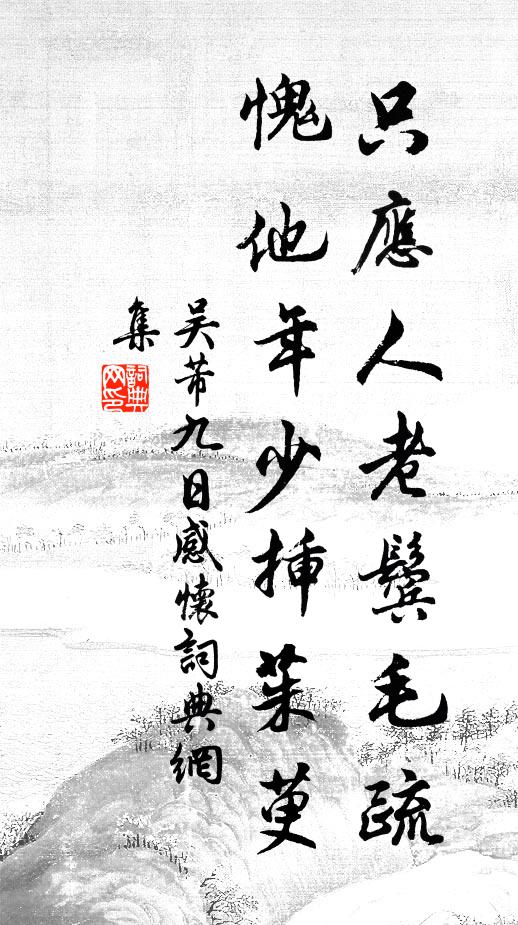 只應人老鬢毛疏
愧他年少揷茱萸
吴芾九日感懷詞典網
集
詞典
网印